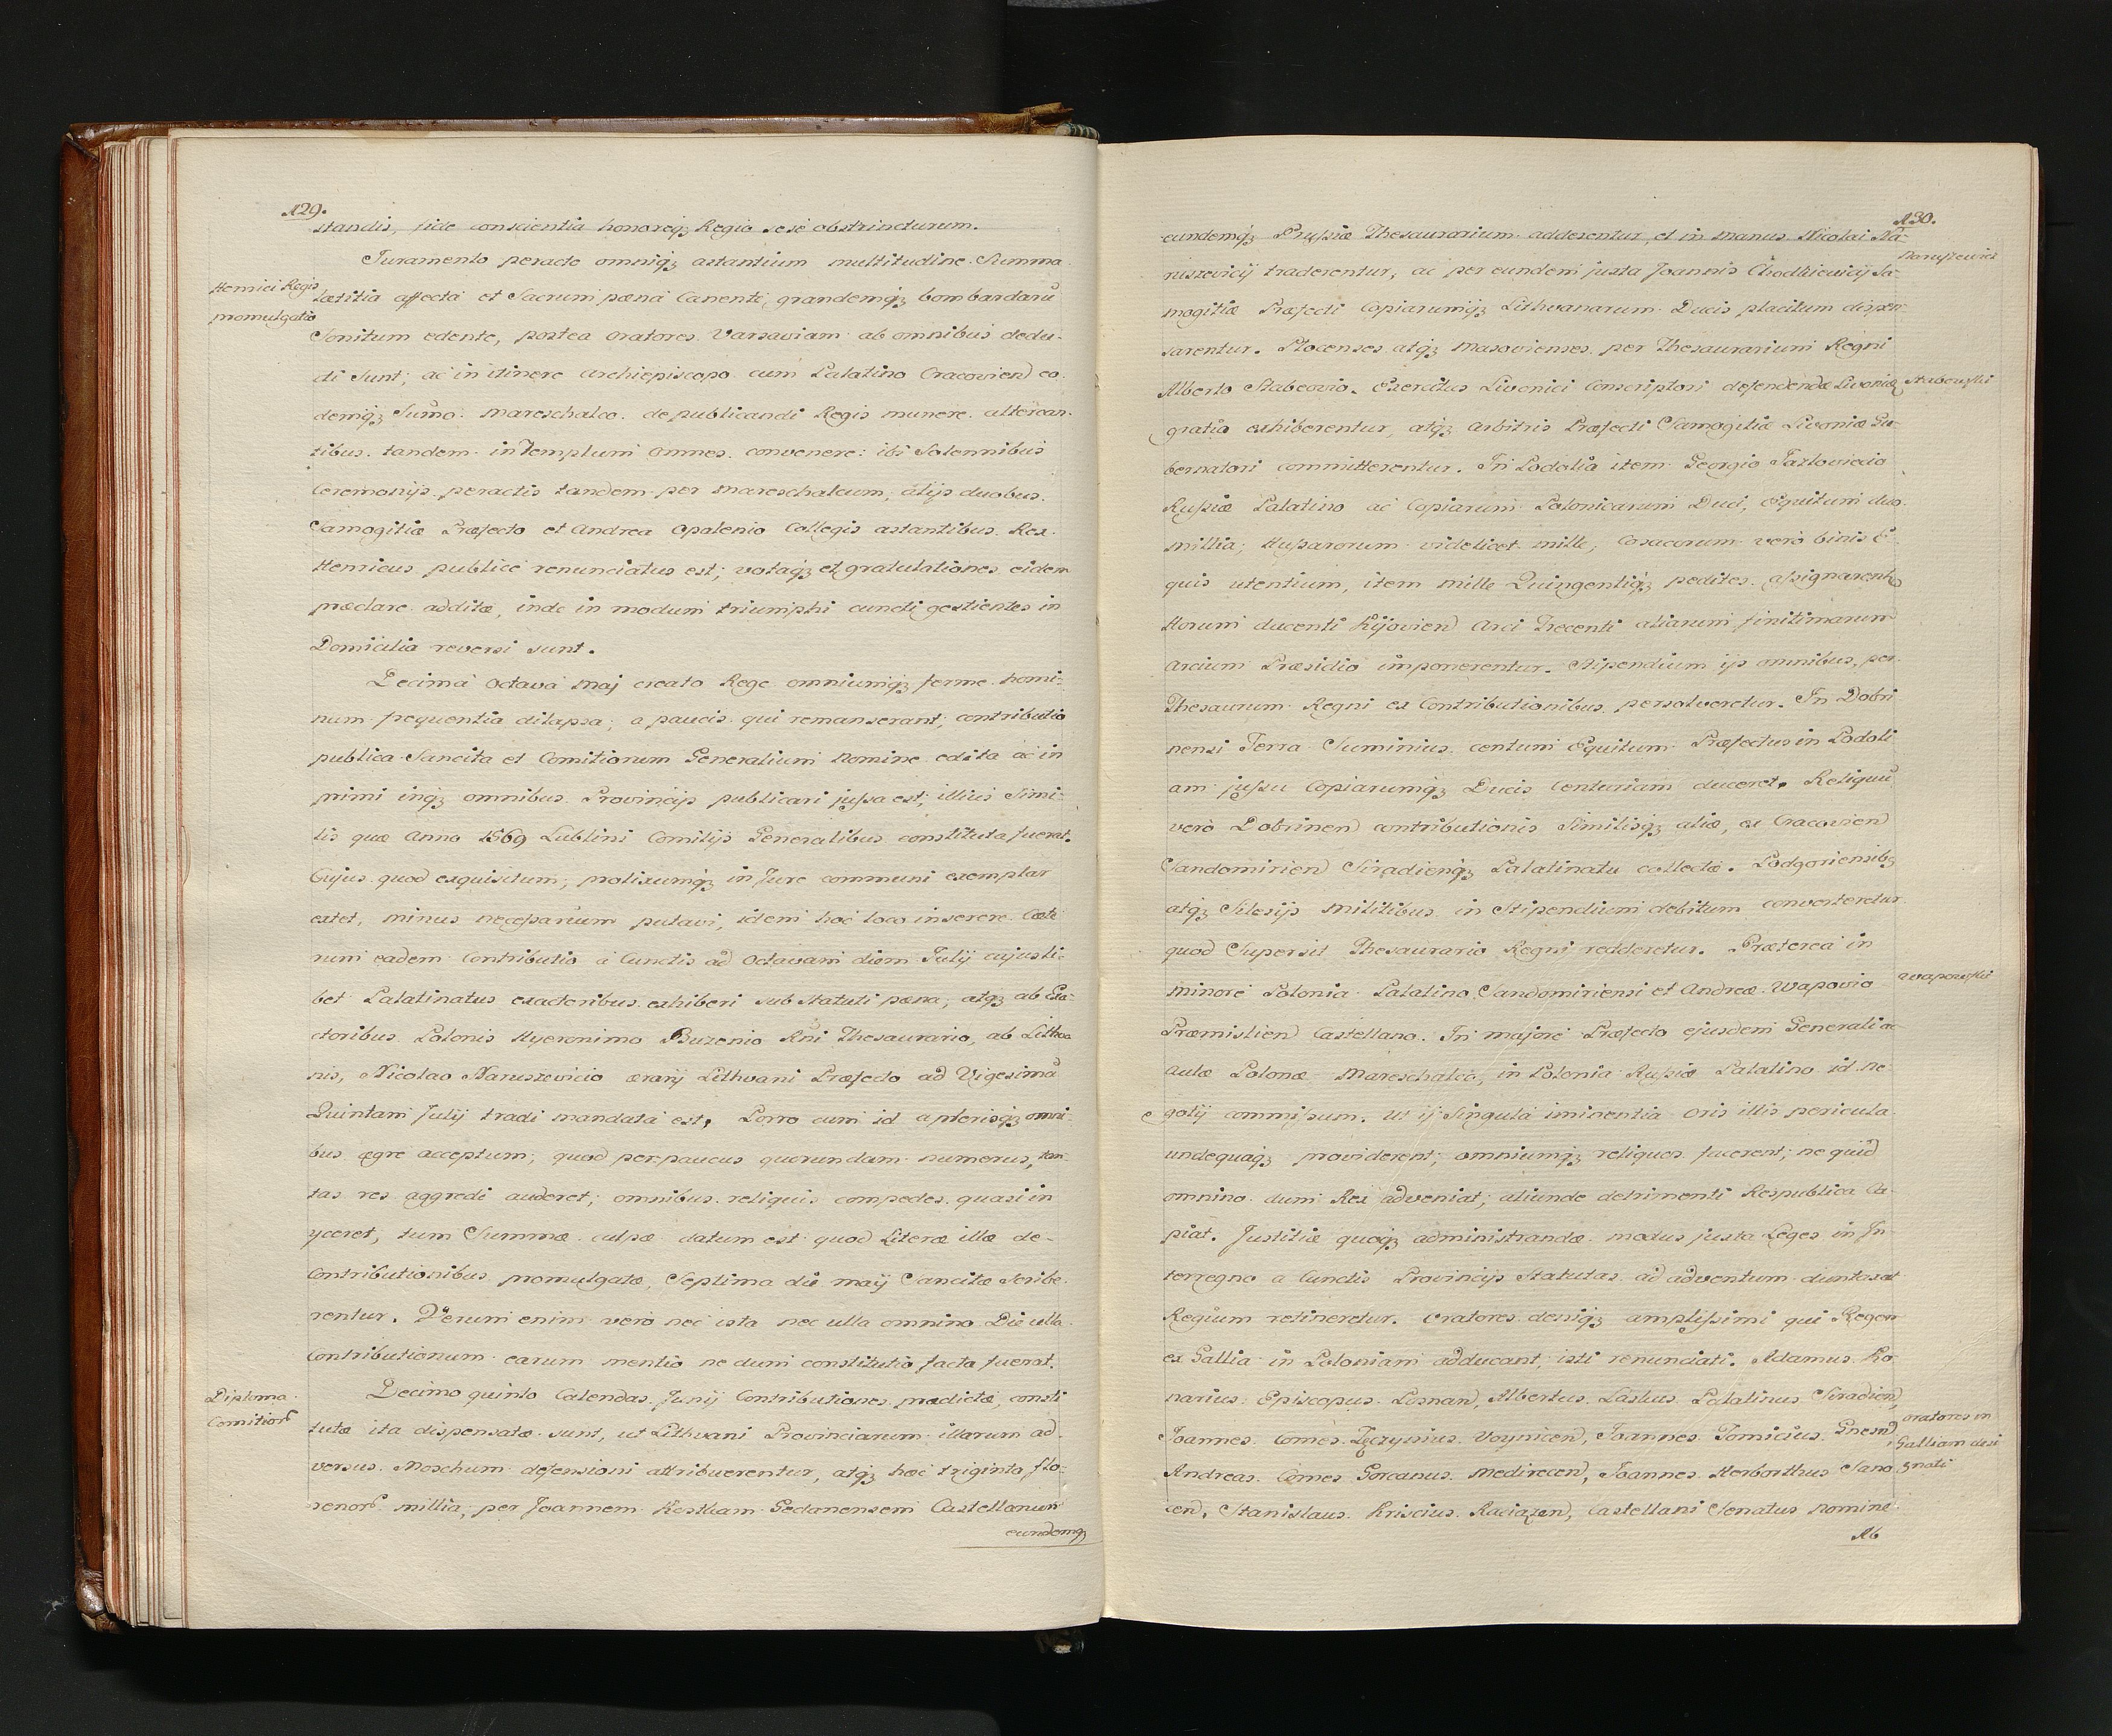 129.
standis, fide conscientia honoreqz Regio sese obstricturum.
Juramento peracto omniqz astantium multitudine Summa
Henrici Regis
promulgatio
Lætitia affectâ et Sacrum pæna Canente, grandemqz bombardarũ
Sonitum edente, postea Oratores Varsaviam ab omnibus dedu-
cti Sunt; ac in itinere Archiepiscopo cum Palatino Cracovien eo-
demqz Sum̃o Mareschalco de publicandi Regis munere altercan-
tibus tandem in Templum Omnes convenere: ibi Solennibus
Ceremonijs peractis tandem per Mareschalcum, alijs duobus
Samogitiæ Præfecto et Andrea Opalenio Collegis astantibus Rex
Henricus publicè renunciatus est; votaqz et gratulationes eidem
præclare additæ, inde in modum triumphi cuncti gestientes in
Domicilia reversi sunt.
Decimâ Octavâ Maj creato Rege omniumqz ferme homi-
num frequentia dilapsa; a paucis qui remanserant, contributio
publica Sancita et Comitiorum Generalium Nomine edita ac in
primi inqz omnibus Provincijs publicari jussa est; illius Simi-
lis quæ Anno 1569 Lublini Comitijs Generalibus constituta fuerat.
Cujus quod exquisitum, prolixumqz in Jure communi exemplar
extet, minus necessarium putavi, idem hoc loco inserere. Cæte-
rum eadem Contributio à Cunctis ad Octavam diem Julij cujusli-
bet Palatinatus exactoribus exhiberi sub Statuti pæna, atqz ab Exa-
ctoribus Polonis Hyeronimo Buzenio Rñi Thesaurario, ab Lithva-
nis, Nicolao Naruszevicio ærarij Lithvani Præfecto ad Vigesimã
Quintam Julij tradi mandata est. Porro cum id a plerisqz omni-
bus ægre acceptum; quod perpaucus quorundam numerus, tan-
tas res aggredi auderet; omnibus reliquis compedes quasi in
yceret, tum Summæ culpæ datum est quod Literæ illæ de
Contributionibus promulgatæ, Septima die Maij Sancitæ Scribe-
rentur. Verum enim verò nec ista nec ulla omnino Die ulla
Contributionum earum mentio ne dum constitutio facta fuerat.
Diploma
Comitior
Decimo quinto Calendas Junij Contributiones prædictæ, consti
tutæ ita dispensatæ sunt, ut Lithvani Provinciarum illarum ad-
versus Moschum defensioni attribuerentur, atqz hoc triginta flo-
renor millia, per Joannem Kostkam Gedanensem Castellanum
eundemqz
130.
eundemqz Prussiæ Thesaurarium adderentur, et in manus Nicolai Na-
Naruszewicz
ruszevicij traderentur, ac per eundem juxta Joannis Chodkievicij Sa-
mogitiæ Præfecti Copiarumqz Lithvanarum Ducis placitum dispen-
sarentur. Plocenses atqz Masovienses per Thesaurarium Regni
Alberto Stabcovio Exercitus Livonici Conscriptori defendendæ Livoniæ
gratia exhiberentur, atqz arbitris Præfecti Samogitiæ Livoniæ Gu-
bernatori committerentur. In Podolia item Georgio Jazlovicio
Russiæ Palatino ac Copiarum Polonicarum Duci, Equitum duo
millia; Hussarorum videlicet mille, Cosacorum verò binis E-
quis utentium, item mille Quingentiqz pedites assignarentur
Horum ducenti Kijovien Arci Trecenti aliarum finitimarum
Arcium Præsidio imponerentur. Stipendium ijs omnibus, per
Thesaurum Regni ex Contributionibus persolveretur. In Dobri
nensi Terra Suminius centum Equitum Præfectus in Podoli
am jussu Copiarumqz Ducis Centuriam duceret. Reliquũ
verò Dobrinen contributionis Similisqz aliæ, ex Cracovien
Sandomirien Siradienqz Palatinatu collectæ. Podgoriensibz
atqz Silesijs militibus in Stipendium debitum converteretur
quod Supersit Thesaurario Regni redderetur. Præterea in
Wapowski
minore Polonia Palatino Sandomiriensi et Andreæ Wapovio
Præmislien Castellano. In majore Præfecto ejusdem Generali ac
aulæ Polonæ Mareschalco, in Polonia Russiæ Palatino id ne-
gotij commissum. Ut ij Singula iminentia oris illis pericula
undequaqz providerent, omniumqz reliquos facerent; ne quid
omnino dum Rex adveniat; aliunde detrimenti Respublica Ca-
piat. Justitiæ quoqz administrandæ modus juxta Leges in In-
terregno a Cunctis Provincijs Statutas ad adventum duntaxat
Regium retineretur. Oratores deniqz amplissimi qui Regem
ex Gallia in Poloniam adducant, isti renunciati. Adamus Ko-
narius Episcopus Posnan, Albertus Laskus Palatinus Siradien,
oratores in
Galliam desi
gnati
Joannes Comes Tęczynius Voynicen, Joannes Tomicius Gnesn,
Andreas Comes Gorcanus Medirecen, Joannes Herborthus Sano-
cen, Stanislaus Kriscius Raciazen, Castellani Senatus nomine
Ab